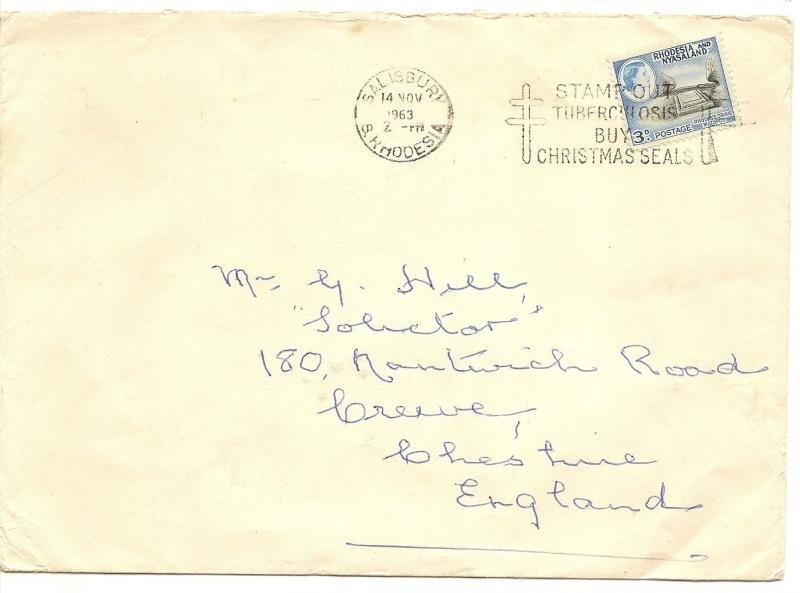 SALISBURY
14 NOV
1963
2 - PM
S. RHODESIA
STAMP OUT
TUBERCULOSIS
BUY
CHRISTMAS SEALS
RHODESIA AND
NYASALAND
3D. POSTAGE
Mr G. Hill,
"Solicitor"
180, Nantwich Road
Crewe,
Cheshire
England